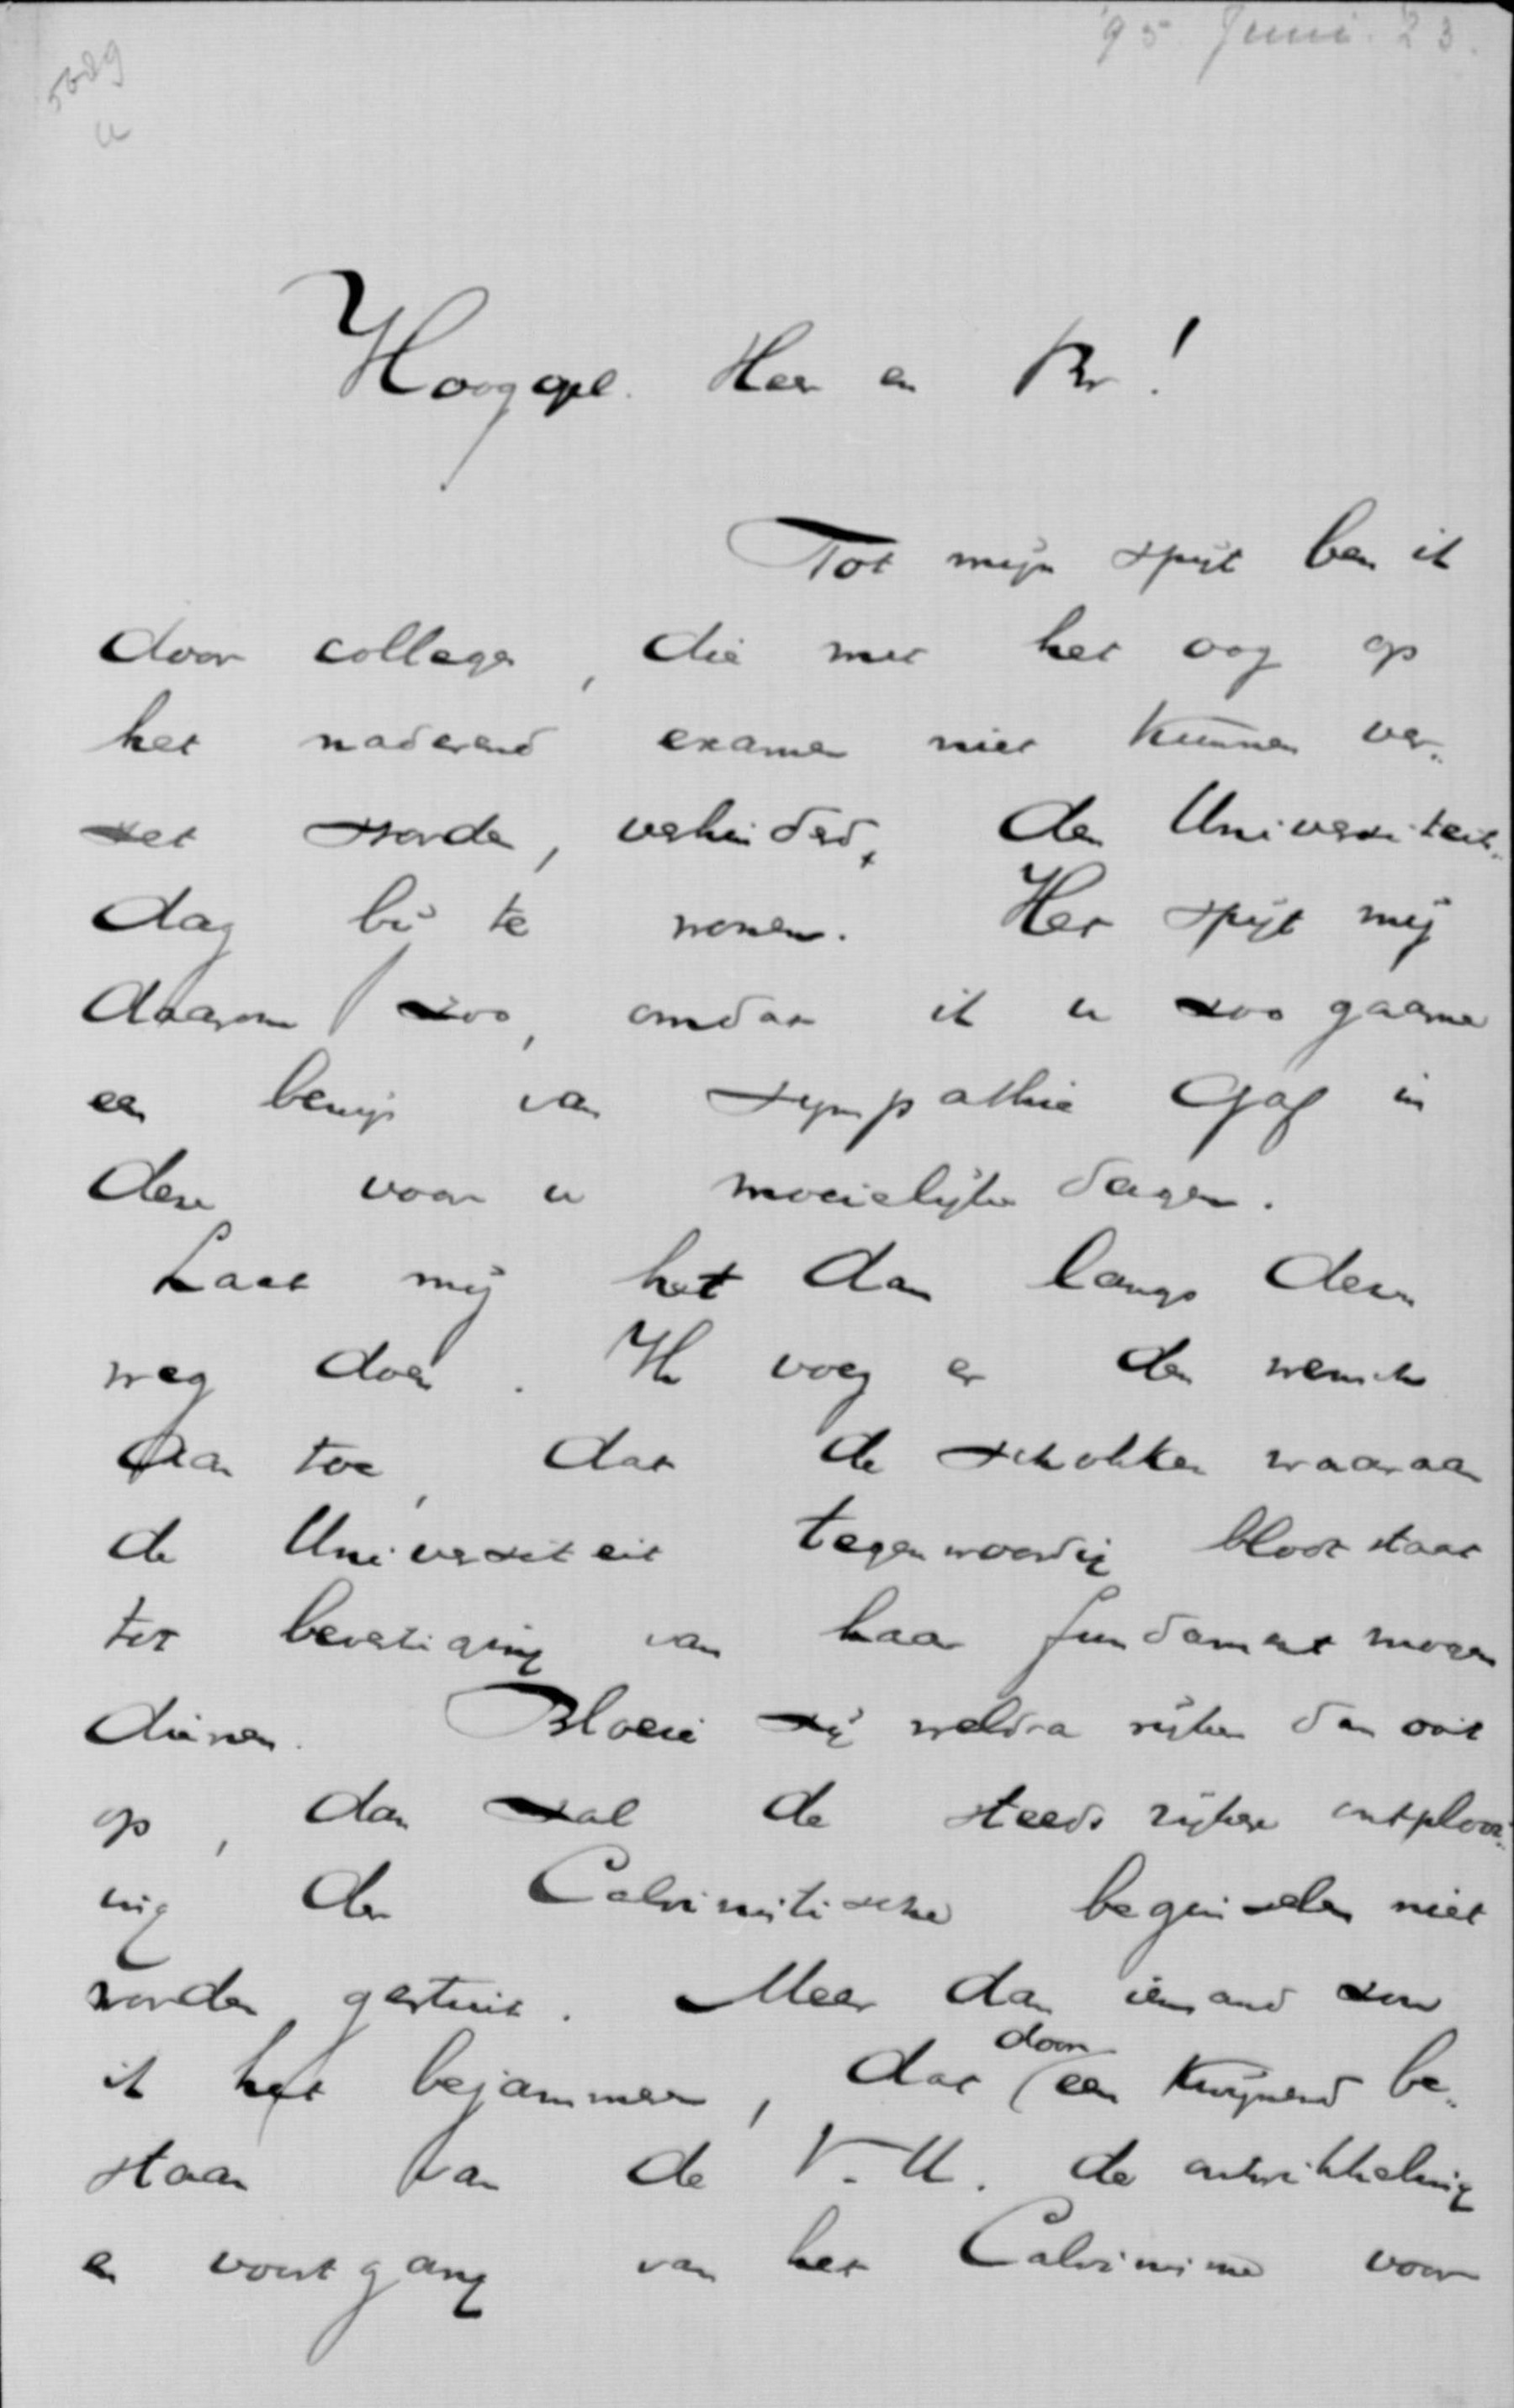 '95 Juni. 23.
5689
a
Hooggel. Heer en Br!
Tot mijn spijt ben ik
door colleges, die met het oog op
het naderend examen niet kunnen ver-
zet worden, verhinderd, den Universiteits-
dag bij te wonen. Het spijt mij
daarom zoo, omdat ik u zoo gaarne
een bewijs van sympathie gaf in
deze voor u moeielijke dagen.
Laat mij het dan langs dezen
weg doen. Ik voeg er den wensch
aan toe, dat de schokken waaraan
de Universiteit tegenwoordig blootstaat
tot bevestiging van haar fundament mogen
dienen. Bloeie zij weldra rijker dan ooit
op, dan zal de steeds rijkere ontplooi-
ing der Calvinistische beginselen niet
worden gestuit. Meer dan iemand zou
ik het bejammeren, dat door een kwijnend be-
staan van de V.U. de ontwikkeling
en voortgang van het Calvinisme voor